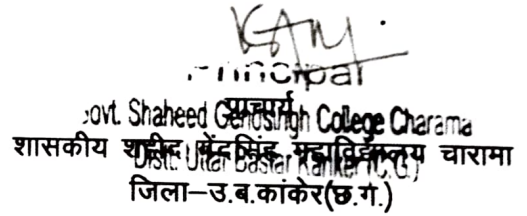 Principal
प्राचार्य
Govt. Shaheed Gendsingh College Charama
शासकीय शहीद गेंदसिंह महाविद्यालय चारामा
Distt. Uttar Bastar Kanker (C.G.)
जिला-उ.ब.कांकेर(छ.ग.)